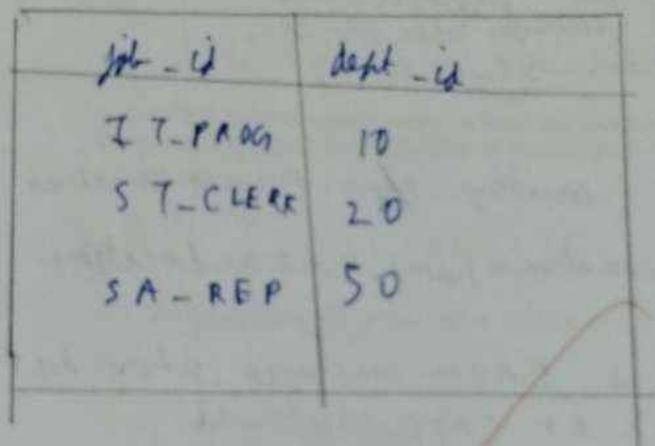 job_id dept_id
IT_PROG 10
ST_CLERK 20
SA_REP 50